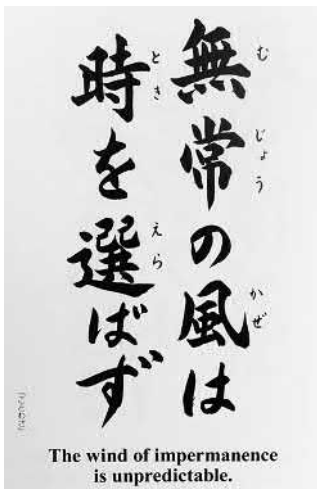 無常の風は
時を選ばず
む
じょう
かぜ
とき
えら
The wind of impermanence
is unpredictable.